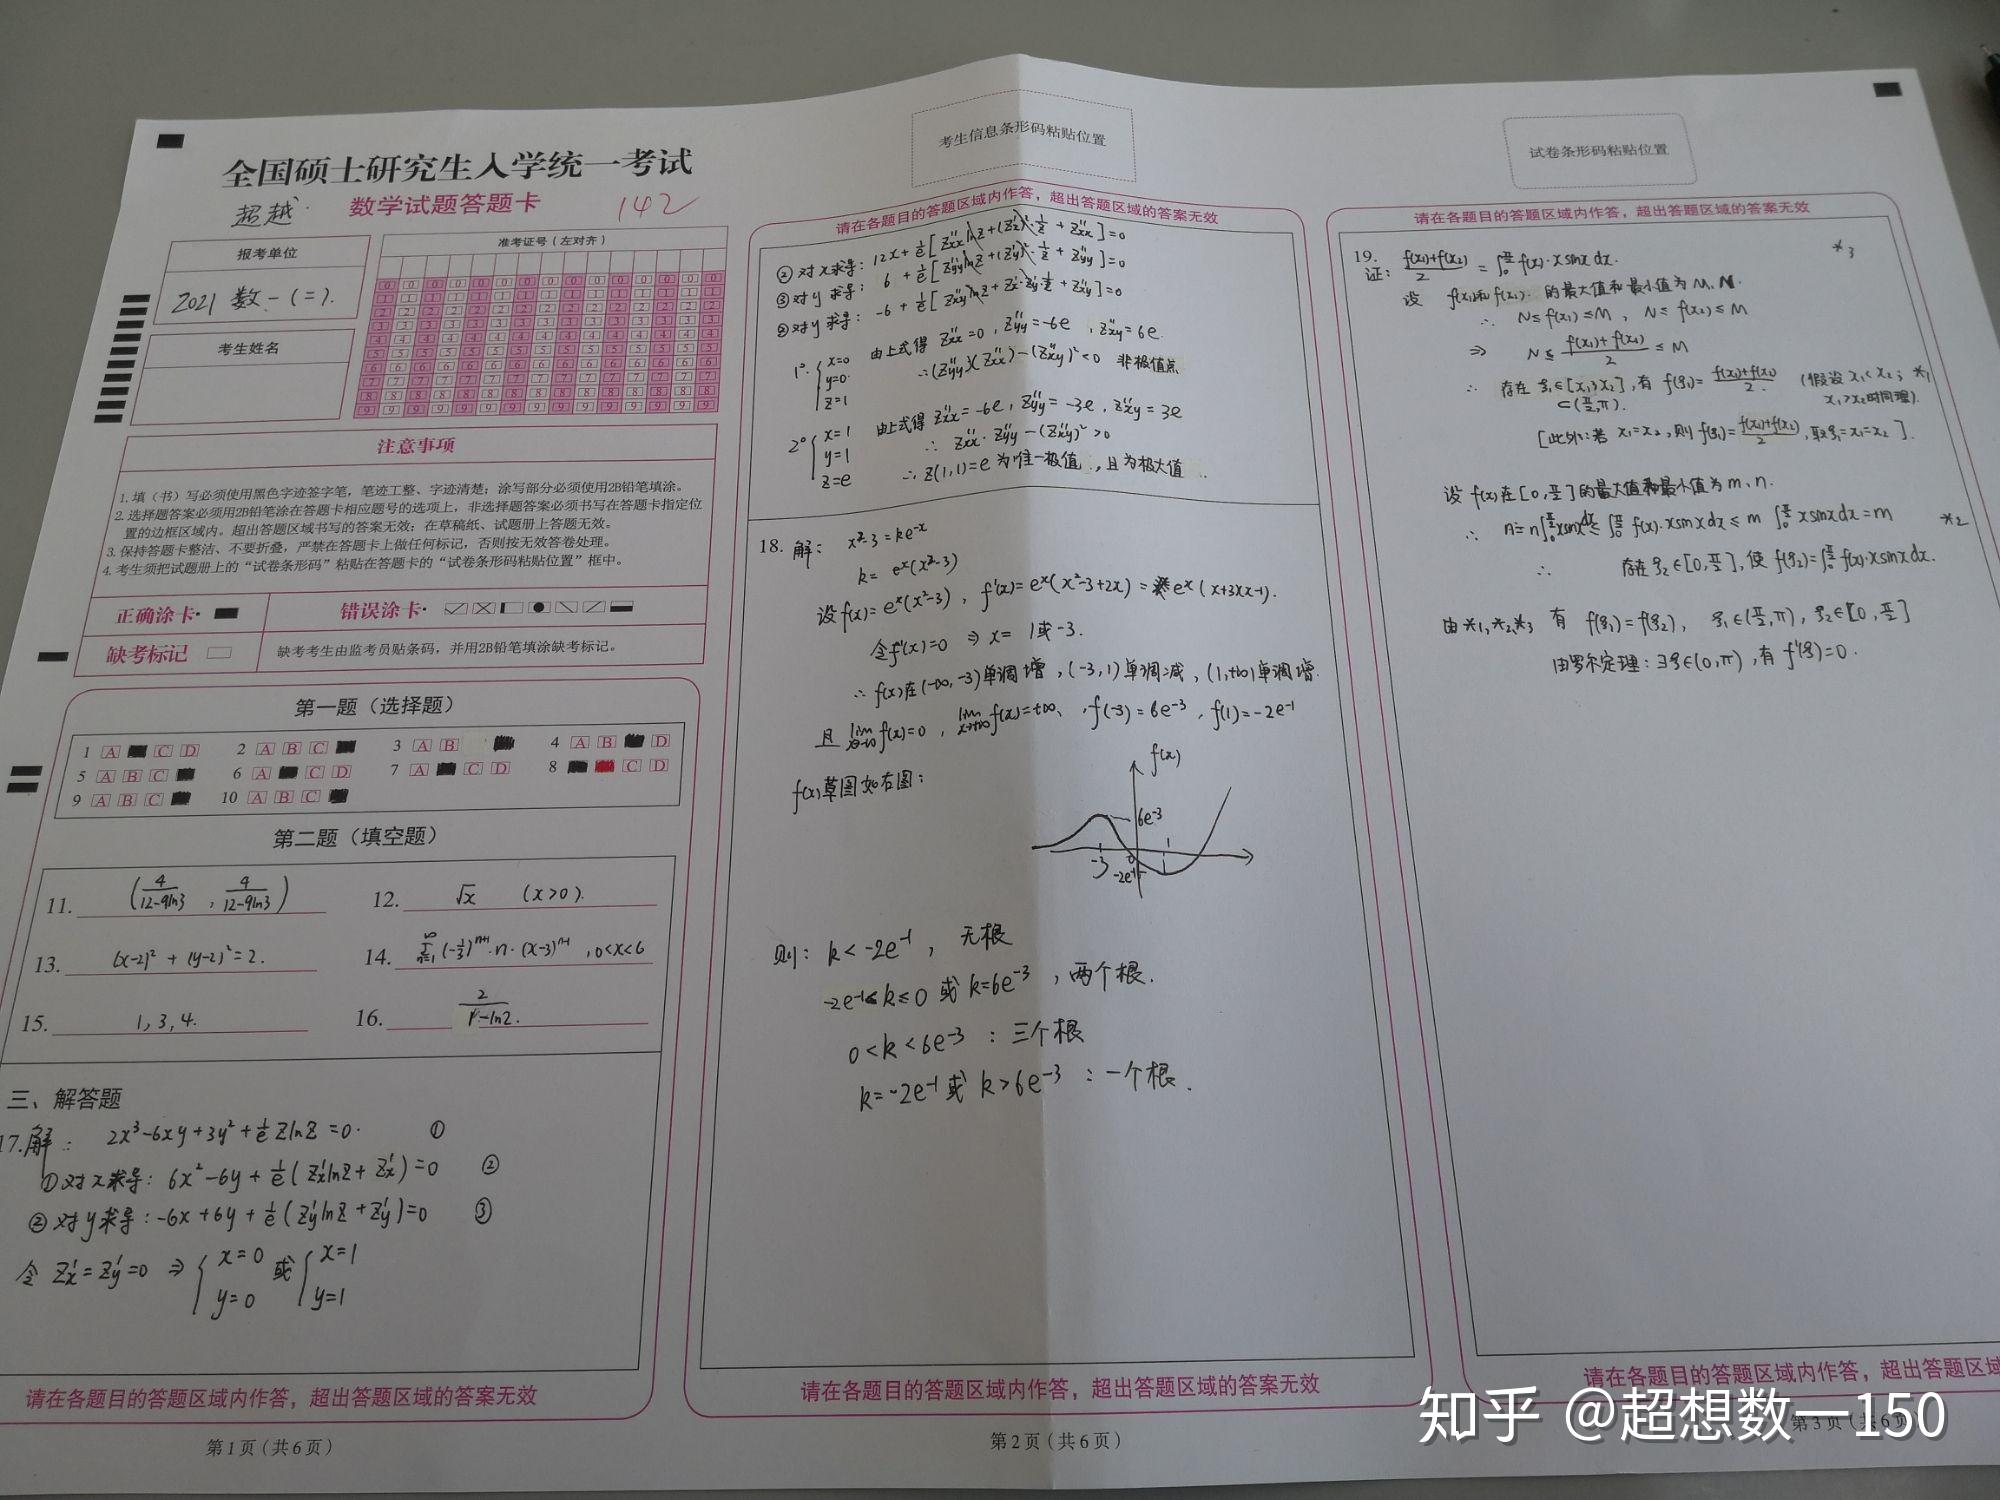 全国硕士研究生入学统一考试
超越
数学试题答题卡
142
报考单位
2021 数一(二).
考生姓名
准考证号(左对齐)
注意事项
1. 填(书)写必须使用黑色字迹签字笔,笔迹工整、字迹清楚;涂写部分必须使用2B铅笔填涂。
2. 选择题答案必须用2B铅笔涂在答题卡相应题号的选项上,非选择题答案必须书写在答题卡指定位
置的边框区域内。超出答题区域书写的答案无效;在草稿纸、试题册上答题无效。
3. 保持答题卡整洁、不要折叠,严禁在答题卡上做任何标记,否则按无效答卷处理。
4. 考生须把试题册上的“试卷条形码”粘贴在答题卡的“试卷条形码粘贴位置”框中。
正确涂卡 错误涂卡
缺考标记 缺考考生由监考员贴条码,并用2B铅笔填涂缺考标记。
第一题(选择题)
1 A C D 2 A B C 3 A B 4 A B D
5 A B C 6 A C D 7 A C D 8 C D
9 A B C 10 A B C
第二题(填空题)
11. (4/(12-9ln3), 4/(12-9ln3))
12. √x (x>0).
13. (x-2)²+(y-2)²=2.
14. ∑_{n=1}^{∞}(-1/3)^{n+1}·n·(x-3)^{n-1}, 0<x<6
15. 1, 3, 4.
16. 2/(1-ln2).
三、解答题
17.解: 2x³-6xy+3y²+1/e zlnz=0. ①
①对x求导: 6x²-6y+1/e(z'x lnz+z'x)=0 ②
②对y求导: -6x+6y+1/e(z'y lnz+z'y)=0 ③
令 z'x=z'y=0 ⇒ {x=0 y=0 或 {x=1 y=1
请在各题目的答题区域内作答,超出答题区域的答案无效
第1页(共6页)
考生信息条形码粘贴位置
请在各题目的答题区域内作答,超出答题区域的答案无效
②对x求导: 12x+1/e[z''xx lnz+(z'x)²·1/z+z''xx]=0
③对y求导: 6+1/e[z''yy lnz+(z'y)²·1/z+z''yy]=0
②对y求导: -6+1/e[z''xy lnz+z'x·z'y·1/z+z''xy]=0
1°. {x=0 y=0 z=1 由上式得 z''xx=0, z''yy=-6e, z''xy=6e.
∴(z''yy)(z''xx)-(z''xy)²<0 非极值点
2° {x=1 y=1 z=e 由上式得 z''xx=-6e, z''yy=-3e, z''xy=3e
∴ z''xx·z''yy-(z''xy)²>0
∴ z(1,1)=e 为唯一极值, 且为极大值
18. 解: x²-3=ke^{-x}
k=e^x(x²-3)
设f(x)=e^x(x²-3), f'(x)=e^x(x²-3+2x)=e^x(x+3)(x-1).
令f'(x)=0 ⇒ x=1或-3.
∴ f(x)在(-∞,-3)单调增, (-3,1)单调减, (1,+∞)单调增.
且 lim_{x→-∞}f(x)=0, lim_{x→+∞}f(x)=+∞, f(-3)=6e^{-3}, f(1)=-2e^{-1}
f(x)草图如右图:
f(x)
6e^{-3}
-3 0 1
-2e^{-1}
则: k<-2e^{-1}, 无根
-2e^{-1}<k≤0 或 k=6e^{-3}, 两个根.
0<k<6e^{-3}: 三个根
k=-2e^{-1}或 k>6e^{-3}: 一个根.
请在各题目的答题区域内作答,超出答题区域的答案无效
第2页(共6页)
试卷条形码粘贴位置
请在各题目的答题区域内作答,超出答题区域的答案无效
19. 证: (f(x₁)+f(x₂))/2=∫_0^{π/2}f(x)·xsinxdx. *3
设 f(x₁)和f(x₂)的最大值和最小值为M、N.
∴ N≤f(x₁)≤M, N≤f(x₂)≤M
⇒ N≤(f(x₁)+f(x₂))/2≤M
∴ 存在ξ₁∈[x₁,x₂], 有 f(ξ₁)=(f(x₁)+f(x₂))/2 (假设x₁<x₂; *1
⊂(π/2,π). x₁>x₂时同理).
[此外:若 x₁=x₂, 则f(ξ₁)=(f(x₁)+f(x₂))/2, 取ξ₁=x₁=x₂].
设 f(x)在[0,π/2]的最大值和最小值为m、n.
∴ n=n∫_0^{π/2}xsinxdx≤∫_0^{π/2}f(x)·xsinxdx≤m∫_0^{π/2}xsinxdx=m *2
∴ 存在ξ₂∈[0,π/2], 使f(ξ₂)=∫_0^{π/2}f(x)·xsinxdx.
由*1,*2,*3 有 f(ξ₁)=f(ξ₂), ξ₁∈(π/2,π), ξ₂∈[0,π/2]
由罗尔定理: ∃ξ∈(0,π), 有f'(ξ)=0.
请在各题目的答题区域内作答,超出答题区域
第3页(共6页)
知乎 @超想数一150